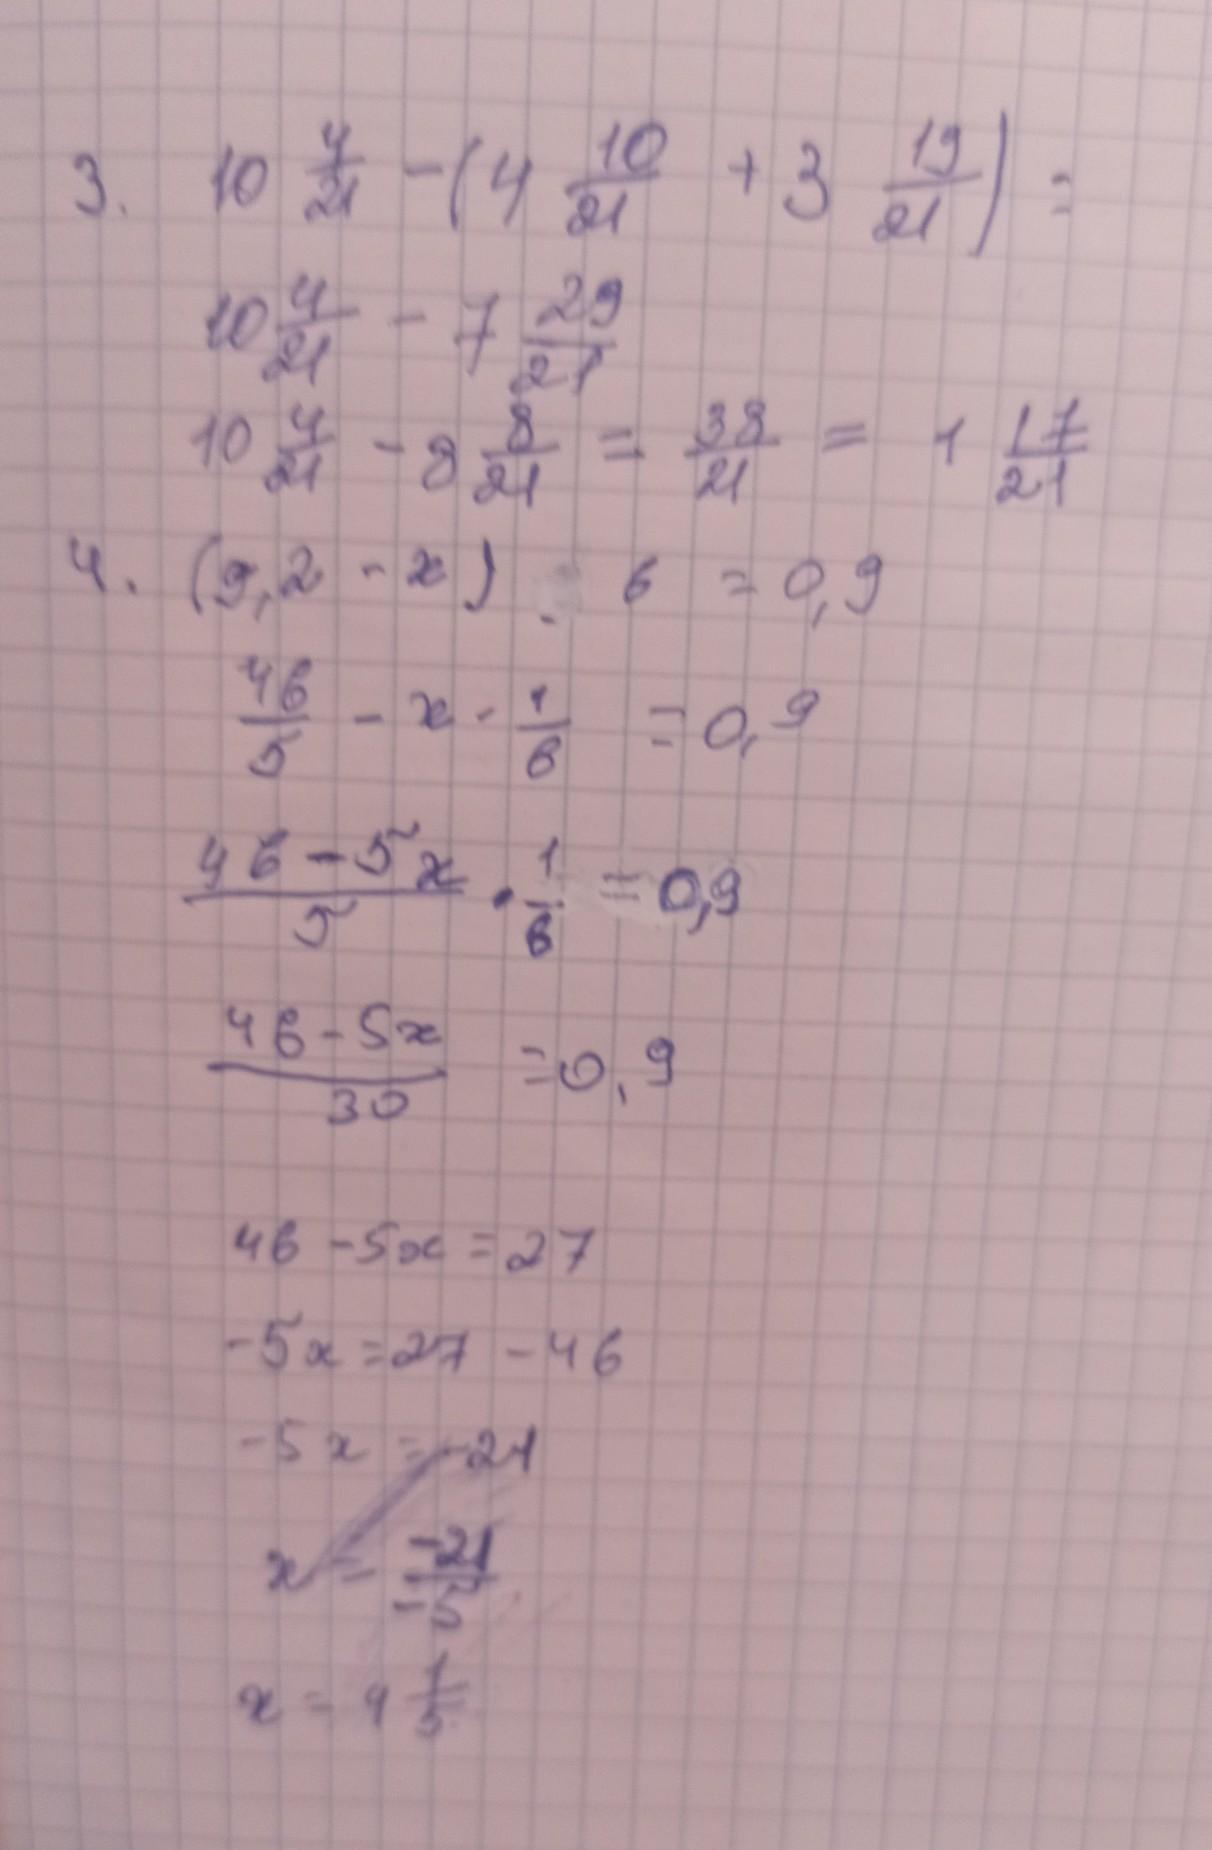 3. 10 4/21 - (4 10/21 + 3 19/21) =
10 4/21 - 7 29/21
10 4/21 - 8 8/21 = 38/21 = 1 17/21
4. (9,2 - x) : 6 = 0,9
46/5 - x · 1/6 = 0,9
46-5x/5 · 1/6 = 0,9
46-5x/30 = 0,9
46 - 5x = 27
-5x = 27 - 46
-5x = -21
x = -21/-5
x = 4 1/5